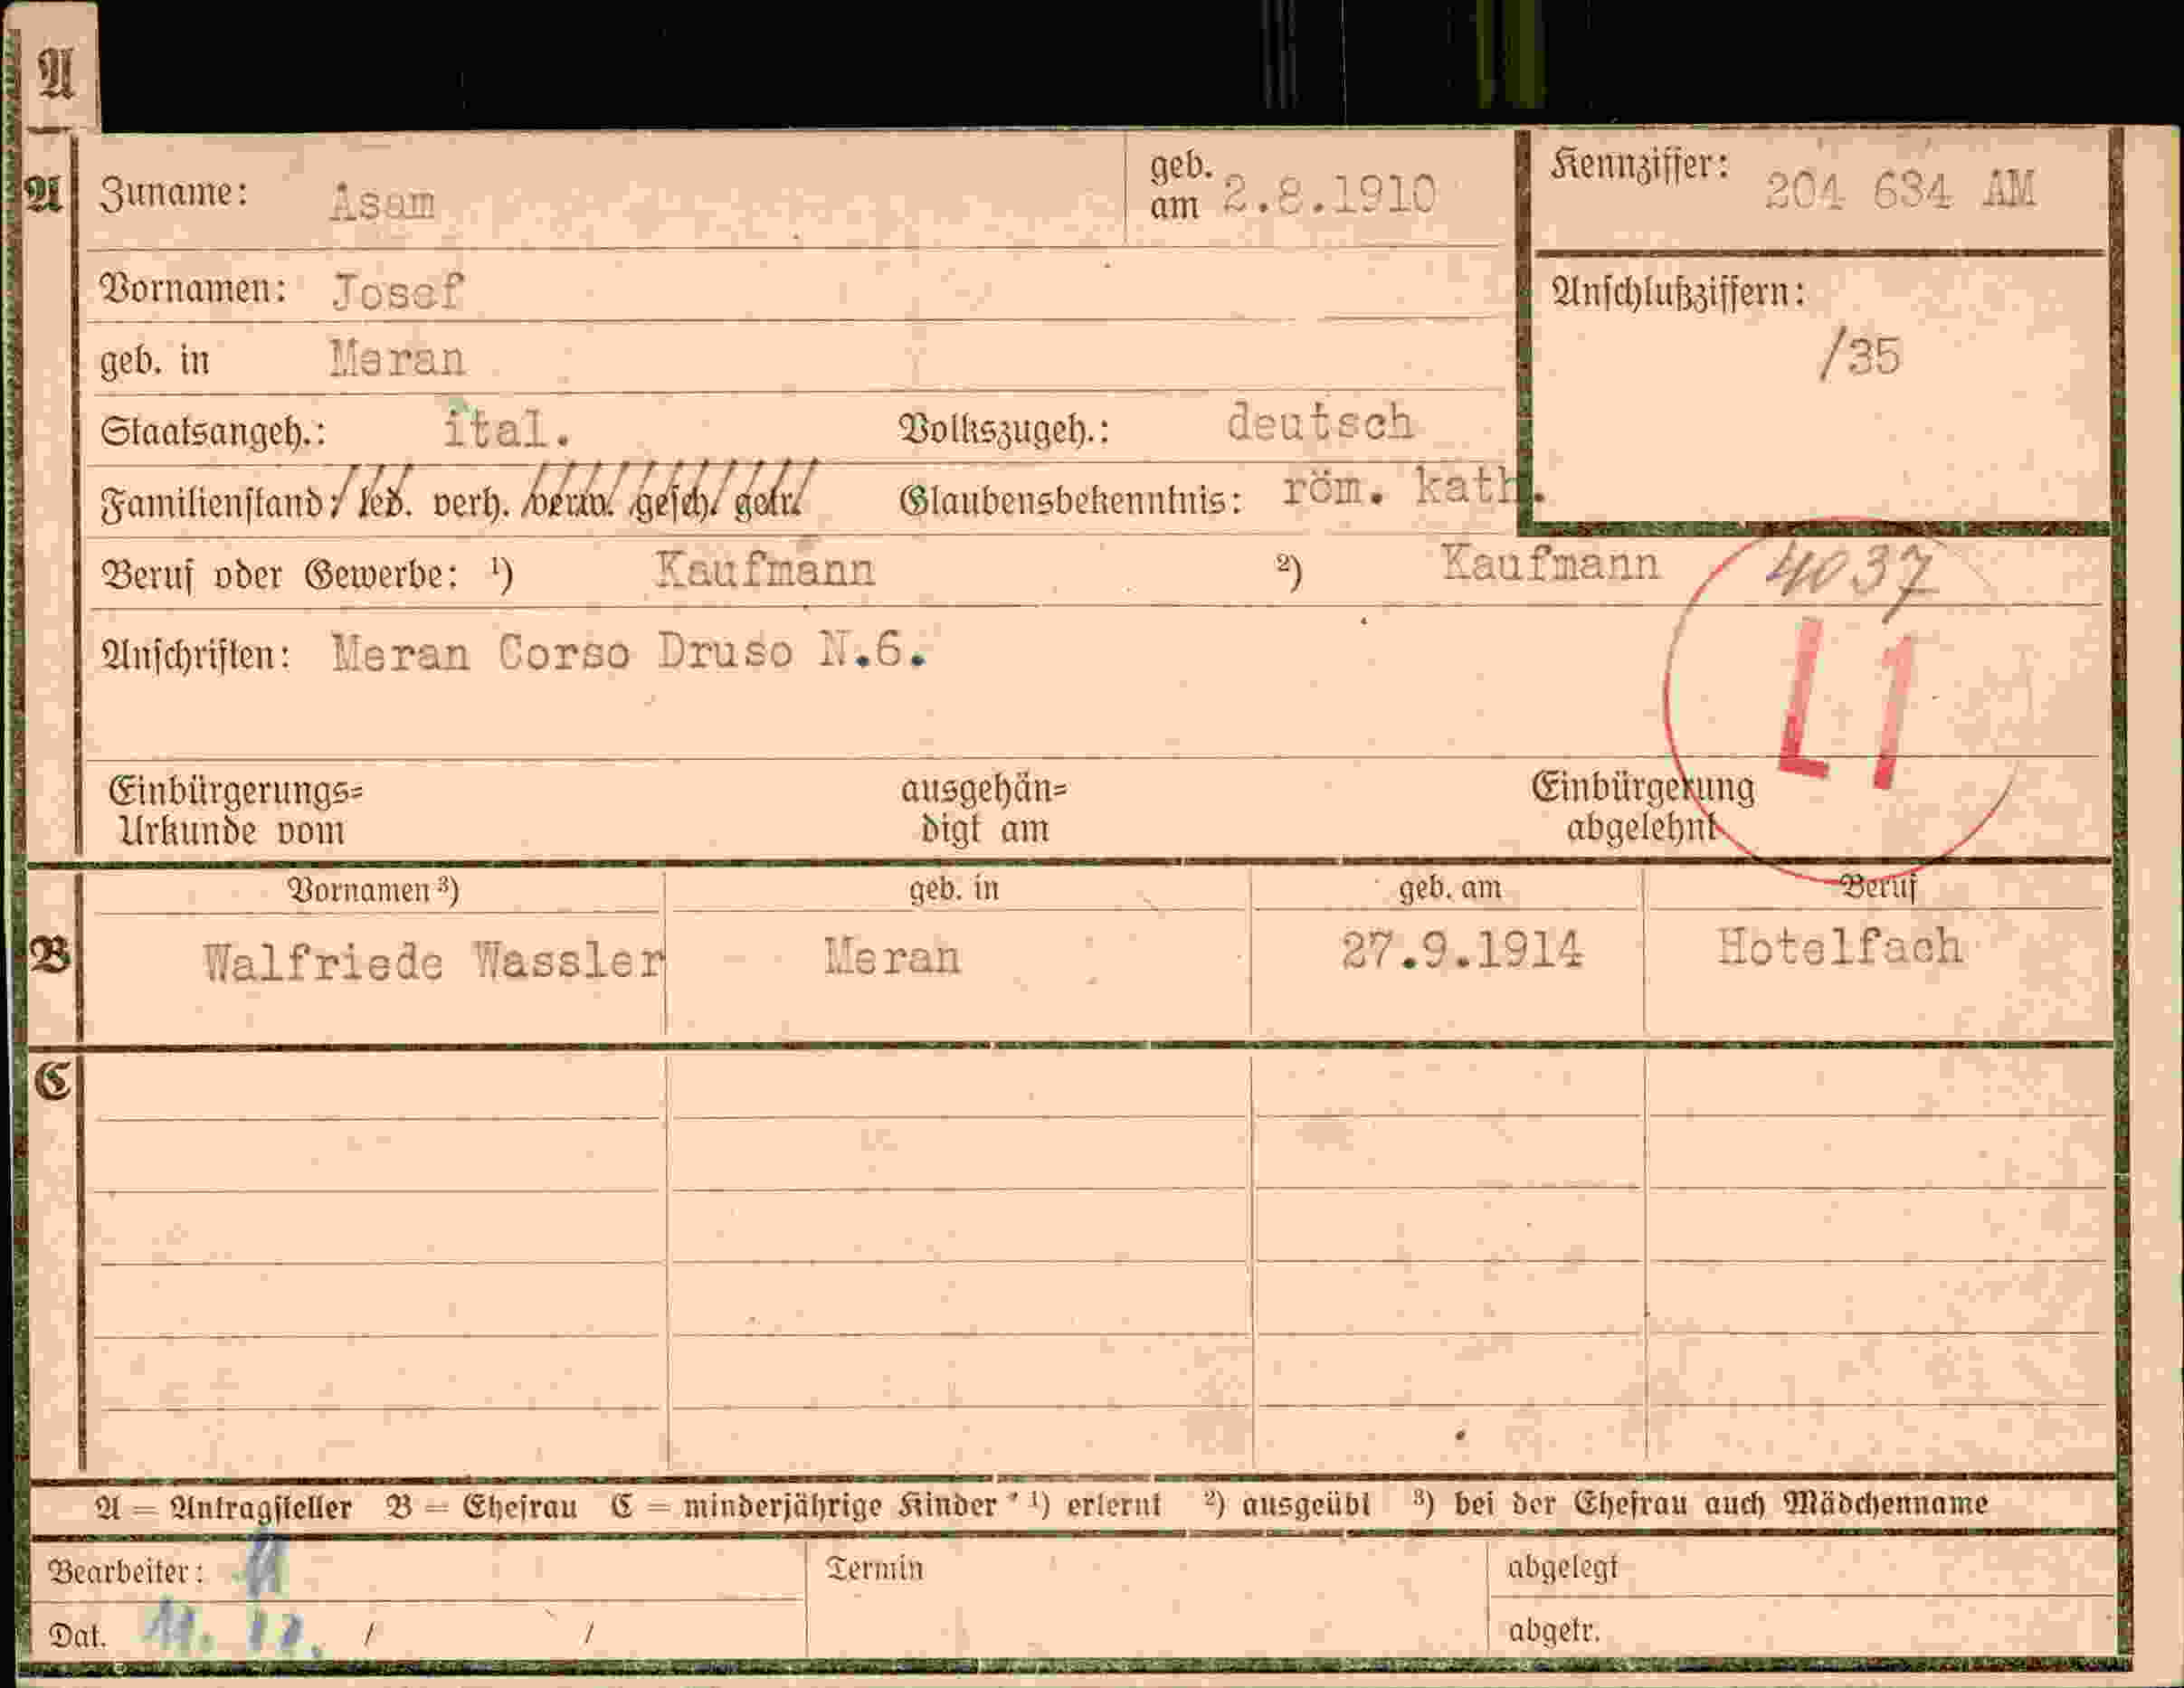 A
A Zuname: Asam geb. am 2.8.1910 Kennziffer: 204 634 AM
Vornamen: Josef Anschlußziffern:
geb. in Meran /35
Staatsangeh.: ital. Volkszugeh.: deutsch
Familienstand: led. verh. verw. gesch. getr. Glaubensbekenntnis: röm. kath.
Beruf oder Gewerbe: ¹) Kaufmann ²) Kaufmann 4037
Anschriften: Meran Corso Druso N.6. L1
Einbürgerungs= ausgehän= Einbürgerung
Urkunde vom digt am abgelehnt
Vornamen ³) geb. in geb. am Beruf
B Walfriede Wassler Meran 27.9.1914 Hotelfach
C
A = Antragsteller B = Ehefrau C = minderjährige Kinder * ¹) erlernt ²) ausgeübt ³) bei der Ehefrau auch Mädchenname
Bearbeiter: Termin abgelegt
Dat. 11. 12. / / abgetr.